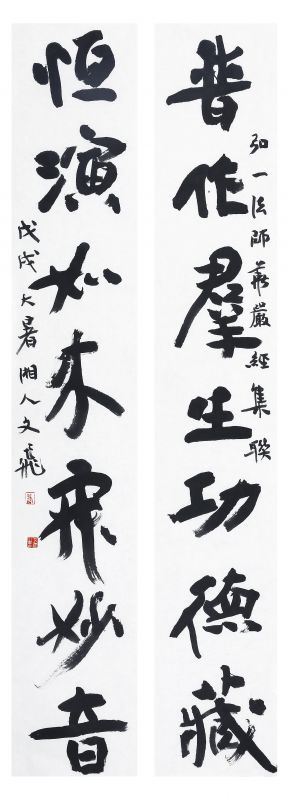 普作羣生功德藏
弘一法師華嚴經集聯
恒演如来寂妙音
戊戌大暑湘人文飛